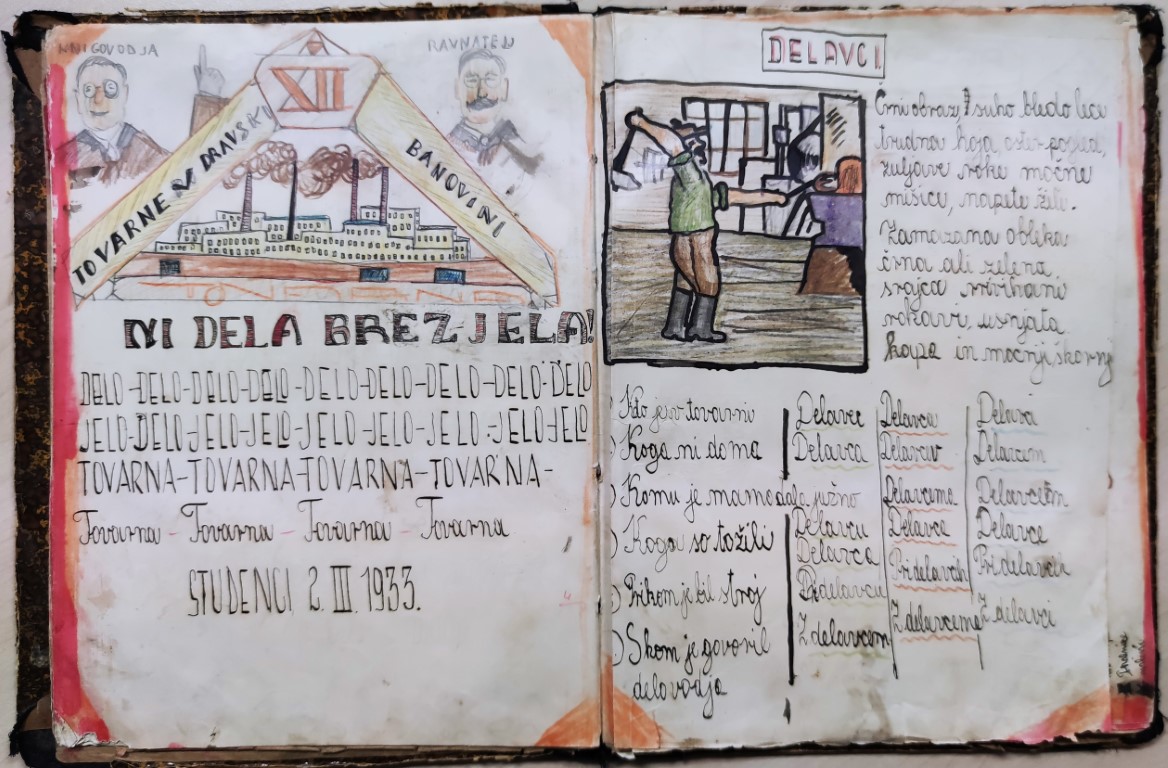 KNIGOVODJA
RAVNATELJ
XII
TOVARNE V DRAVSKI
BANOVINI
NI DELA BREZ JELA!
DELO-DELO-DELO-DELO-DELO-DELO-DELO-DELO-DELO
JELO-JELO-JELO-JELO-JELO-JELO-JELO-JELO-JELO
TOVARNA-TOVARNA-TOVARNA-TOVARNA-
Tovarna - Tovarna - Tovarna - Tovarna
STUDENCI 2. III. 1933.
DELAVCI.
Črni obraz, suho bledo lice
trudna hoja, oster pogled,
žuljave roke močne
mišice, napete žile.
Zamazana obleka
črna ali zelena
srajca zavihani
rokavi, usnjata
kapa in močnji škornji
Kdo je v tovarni Delavec Delavca Delavci
Koga ni doma Delavca Delavcev Delavcem
Komu je mama dala južno Delavcu Delavcema Delavcem
Koga so tožili Delavca Delavca Delavce
Pri kom je bil stroj Pri delavcu Pri delavcih Pri delavcih
S kom je govoril Z delavcem Z delavcema Z delavci
delovodja